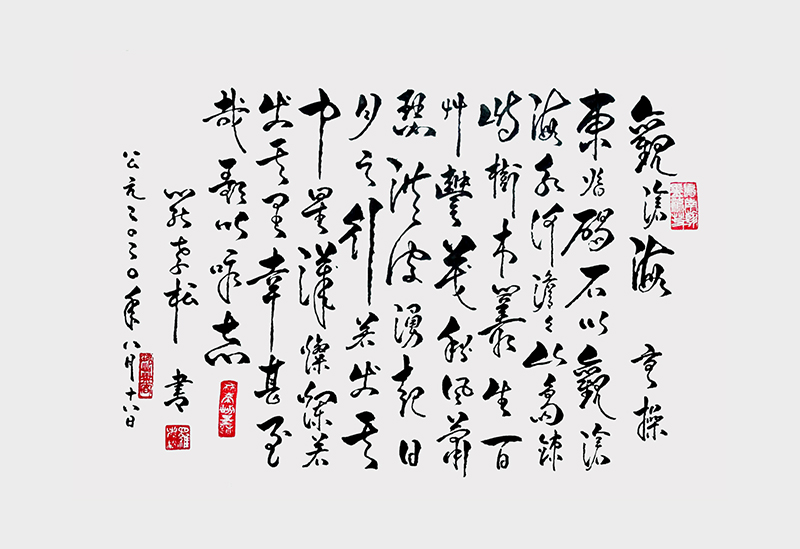 觀滄海 曹操
東臨碣石以觀滄
海水何澹々山島竦
峙樹木叢生百
艸豐茂秋風蕭
瑟洪波湧起日
月之行若出其
中星漢燦爛若
出其里幸甚至
哉歌以詠志
書
公元二〇二〇年八月十八日